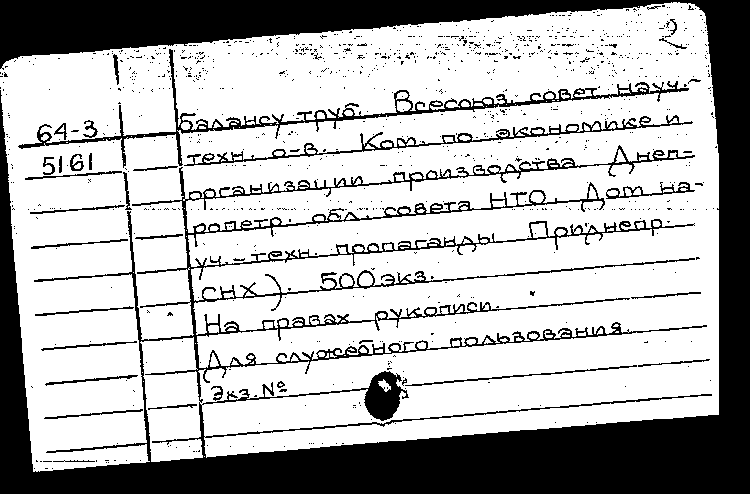 2
64-3
5161
балансу труб. Всесоюз. совет науч.-
техн. о-в. Ком. по экономике и
организации производства Днеп-
ропетр. обл. совета НТО. Дом на-
уч.-техн. пропаганды Приднепр.
СНХ). 500 экз.
На правах рукописи.
Для служебного пользования.
Экз. №